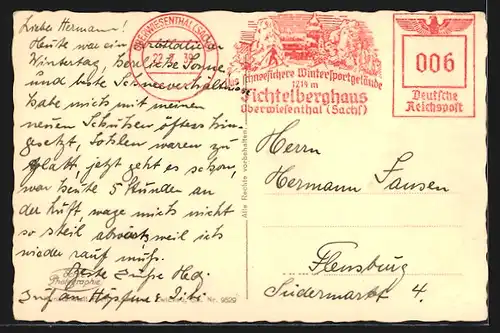 Lieber Hermann!
Heute war ein
Wintertag, herrliche Sonne
und beste Schneeverhältnisse
habe mich mit meinen
neuen Schuhen öfters hin-
gesetzt, Sohlen waren zu
glatt, jetzt geht es schon,
war heute 5 Stunden an
der Luft, wage mich nicht
so steil abwärts, weil ich
wieder rauf muß.
Beste Grüße Hed.
Photographie
Nr. 9629
Alle Rechte vorbehalten
OBERWIESENTHAL (SACHS)
22.2.39
Das schneesichere Wintersportgelände
1214 m
Fichtelberghaus
Oberwiesenthal (Sachs)
006
Deutsche
Reichspost
Herrn
Hermann Jansen
Flensburg
Südermarkt 4.